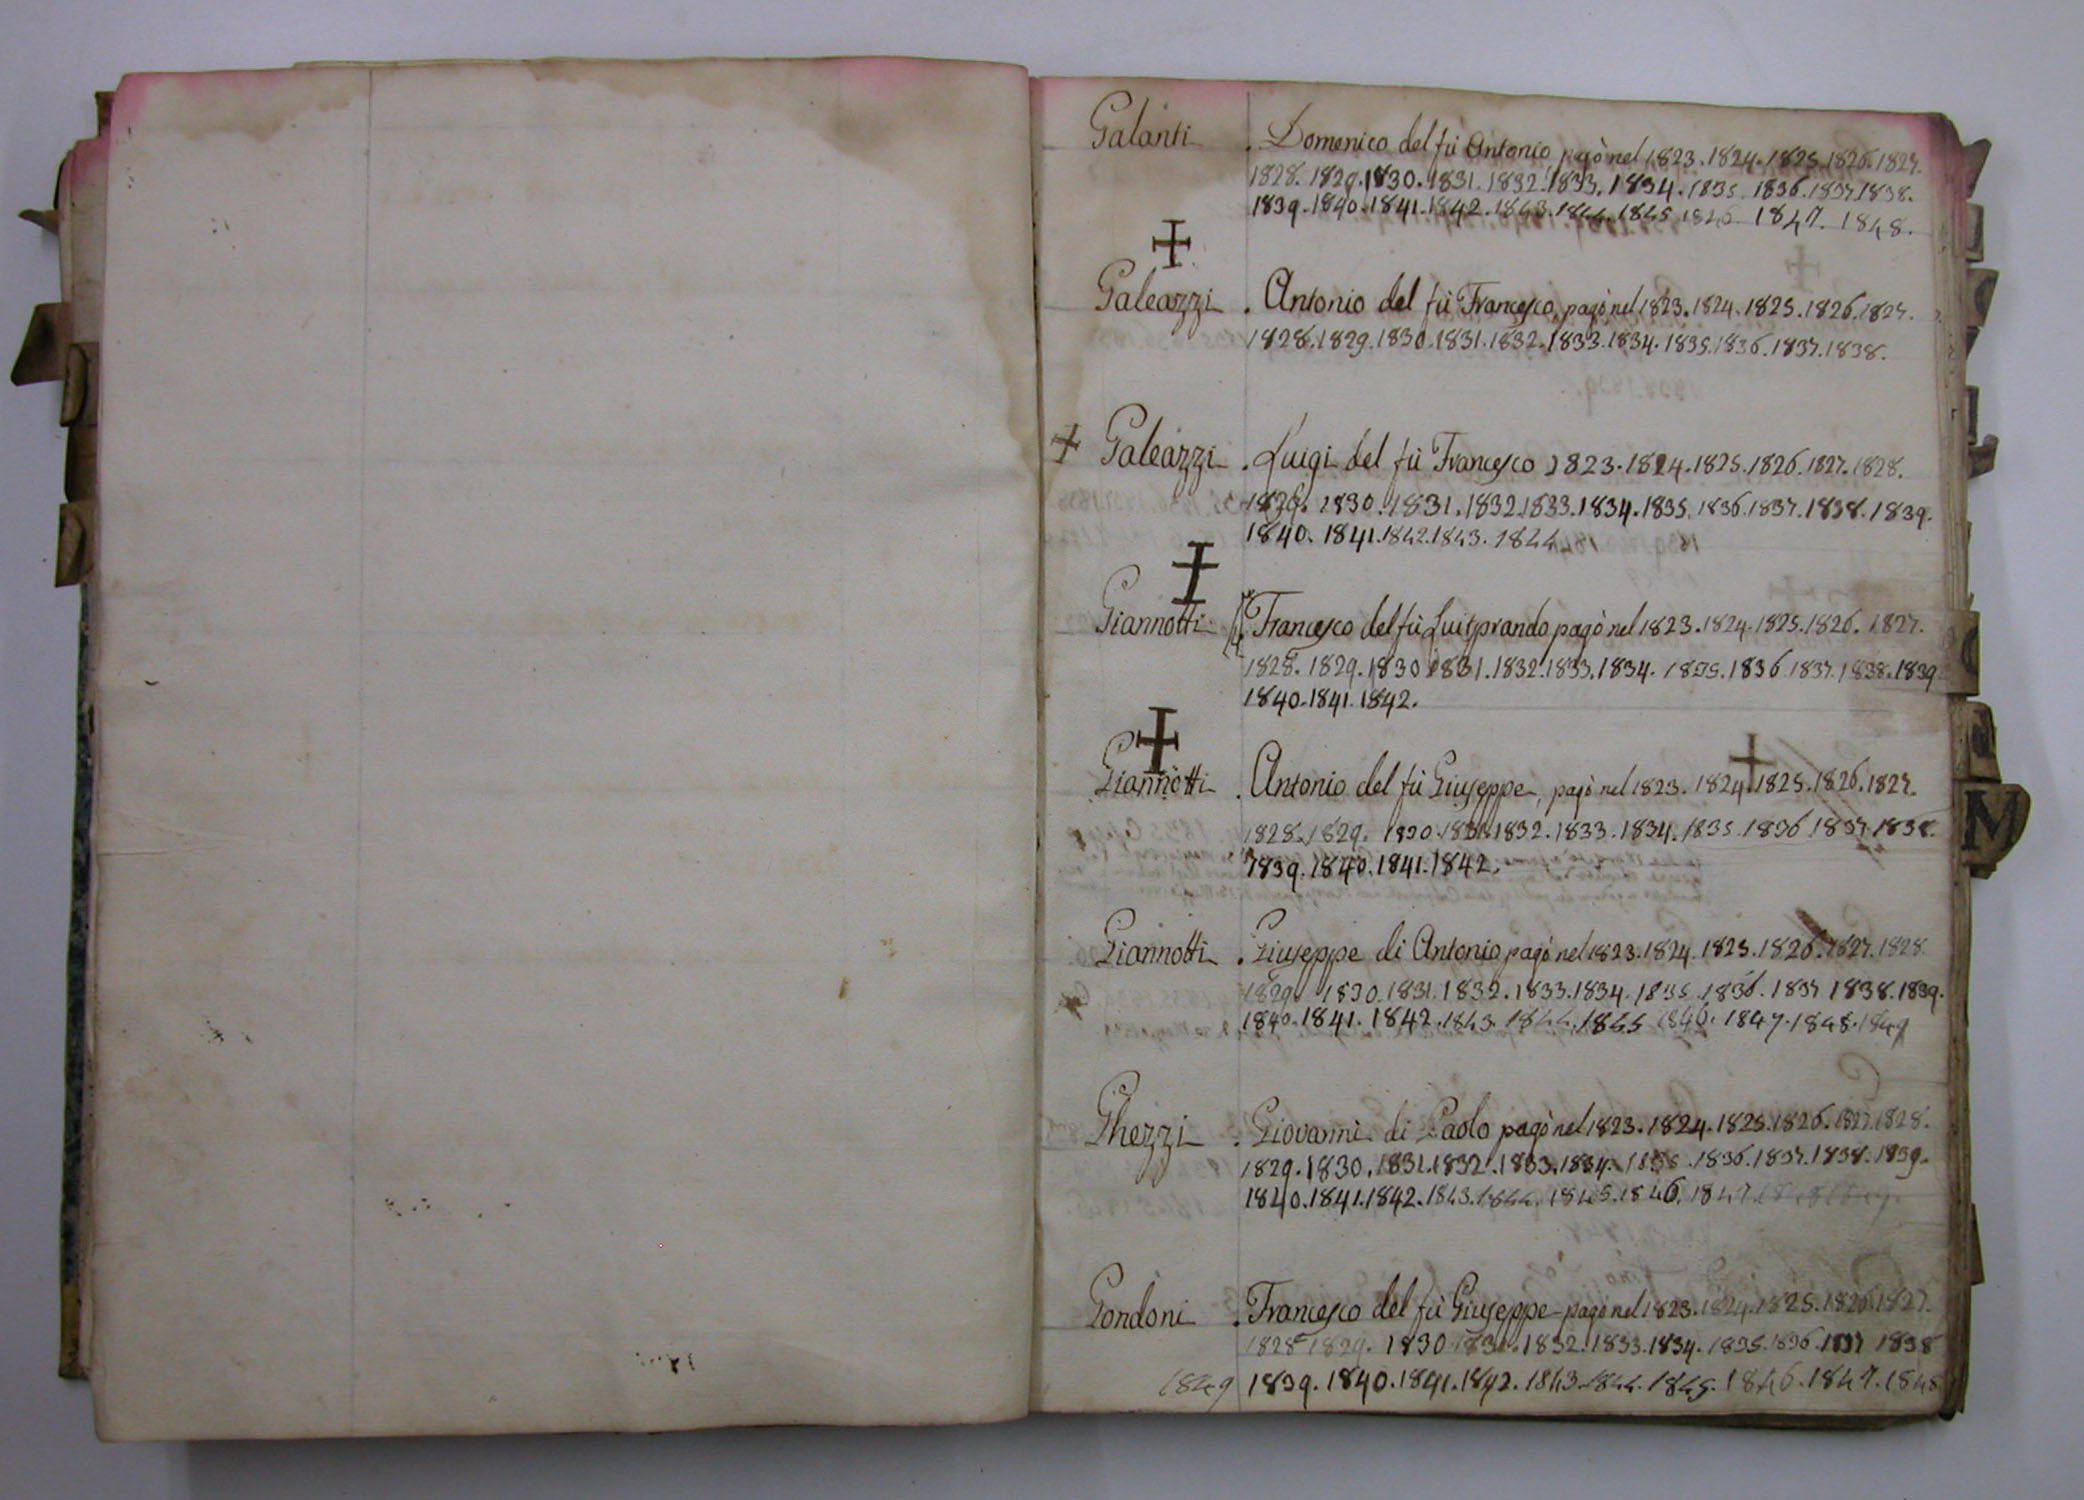 Galanti . Domenico del fù Antonio, pagò nel 1823. 1824. 1825. 1826. 1827.
1828. 1829. 1830. 1831. 1832. 1833. 1834. 1835. 1836. 1837. 1838.
1839. 1840. 1841. 1842. 1843. 1844. 1845 1846. 1847. 1848.
Galeazzi . Antonio del fù Francesco, pagò nel 1823. 1824. 1825. 1826. 1827.
1828. 1829. 1830. 1831. 1832. 1833. 1834. 1835. 1836. 1837. 1838.
Galeazzi . Luigi del fù Francesco 1823. 1824. 1825. 1826. 1827. 1828.
1829. 1830. 1831. 1832. 1833. 1834. 1835. 1836. 1837. 1838. 1839.
1840. 1841. 1842. 1843. 1844
Giannotti . Francesco del fù Luitprando pagò nel 1823. 1824. 1825. 1826. 1827.
1828. 1829. 1830 1831. 1832. 1833. 1834. 1835. 1836 1837. 1838. 1839
1840. 1841. 1842.
Giannotti . Antonio del fù Giuseppe, pagò nel 1823. 1824. 1825. 1826. 1827.
1828. 1829. 1830. 1831. 1832. 1833. 1834. 1835. 1836 1837 1838.
1839. 1840. 1841. 1842.
Giannotti . Giuseppe di Antonio pagò nel 1823. 1824. 1825. 1826. 1827. 1828.
1829. 1830. 1831. 1832. 1833. 1834. 1835. 1836. 1837 1838. 1839.
1840. 1841. 1842. 1843. 1844. 1845 1846. 1847. 1848. 1849
Ghezzi . Giovanni di Paolo pagò nel 1823. 1824. 1825. 1826. 1827. 1828.
1829. 1830. 1831. 1832. 1833. 1834. 1835. 1836. 1837. 1838. 1839.
1840. 1841. 1842. 1843. 1844. 1845. 1846. 1847. 1848. 1849.
Gondoni . Francesco del fù Giuseppe pagò nel 1823. 1824. 1825. 1826. 1827.
1828 1829. 1830 1831. 1832. 1833. 1834. 1835. 1836. 1837 1838
1849 1839. 1840. 1841. 1842. 1843. 1844. 1845. 1846. 1847. 1848
M